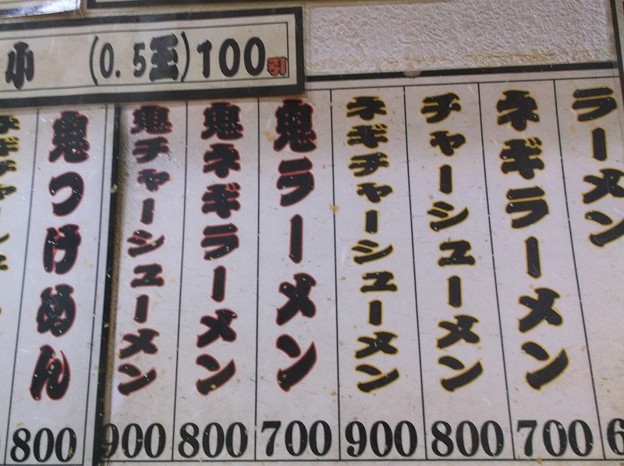 小 (0.5玉)100引
ラーメン
ネギラーメン 700
チャーシューメン 800
ネギチャーシューメン 900
鬼ラーメン 700
鬼ネギラーメン 800
鬼チャーシューメン 900
鬼つけめん 800